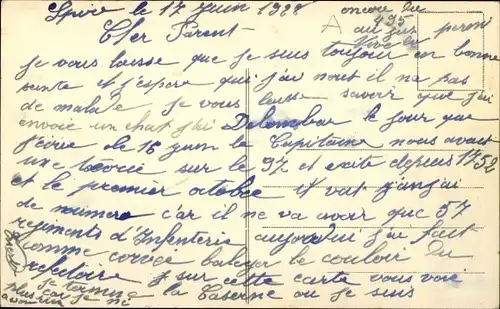 Spire le 17 Juin 1928
encore du
495
au jus
Vive la
Cher Parent
je vous laisse que je suis toujour en bonne
sente et j'espère qui j'ai nous il ne pas
de malade je vous laisse savoir que j'ai
envoié un chat j'ai Delombar le jour que
j'écrie de 15 juin le Capitaine nous avait
une téorie sur le 97 et exite depuis 1752
et le premier octobre il vat
de numero car il ne va avoir que 57
regiments d'Infenterie aujourdui j'ai fait
comme corvée balayer le couloir du
refectoire sur cette carte vous voié
la Caserne ou je suis
je termine
plus car je né